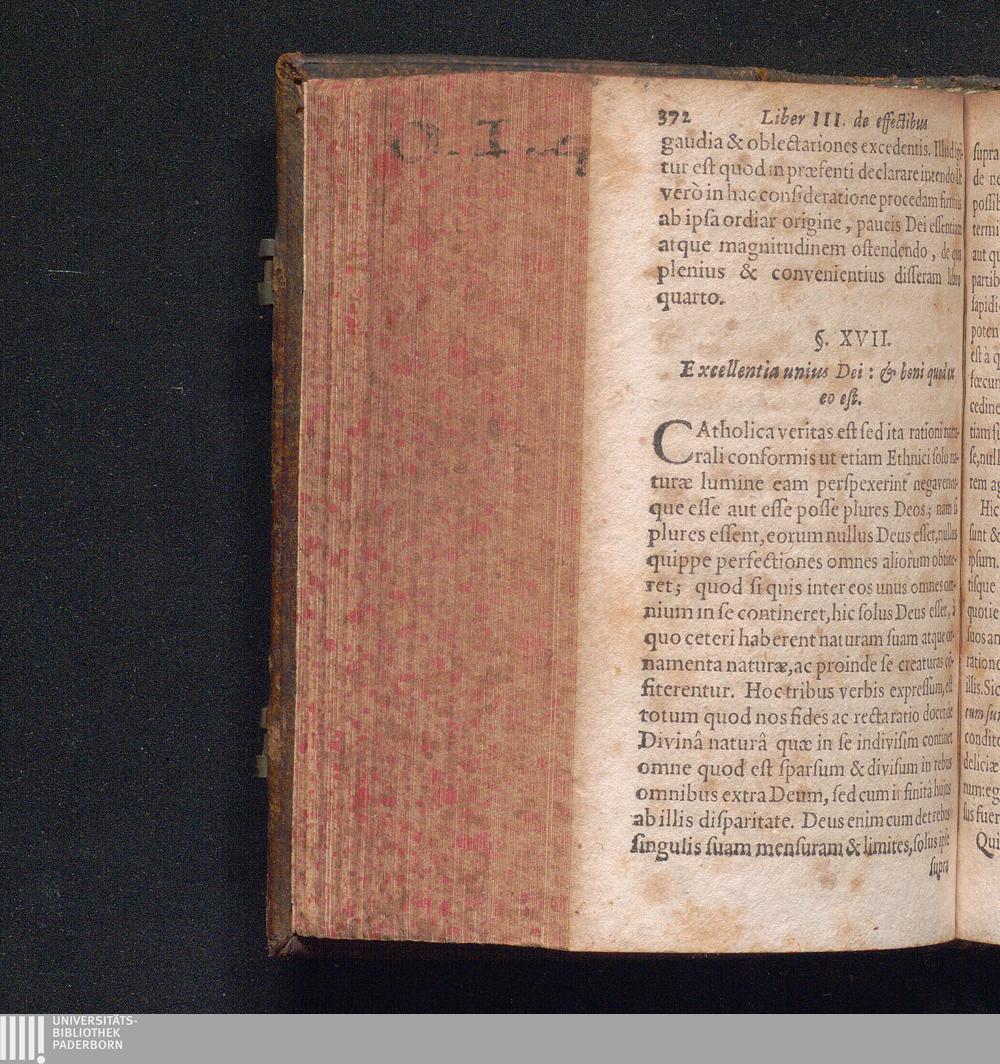 O. I. q
372 Liber III. de effectibus
gaudia & oblectationes excedentis. Illud igi-
tur est quod in præsenti declarare intendo. Ut
verò in hac consideratione procedam firmius
ab ipsa ordiar origine, paucis Dei essentiam
atque magnitudinem ostendendo, de qua
plenius & convenientius disseram libro
quarto.
§. XVII.
Excellentia unius Dei: & boni quod ex
eo est.
CAtholica veritas est sed ita rationi natu-
rali conformis ut etiam Ethnici solo na-
turæ lumine eam perspexerint negaverint-
que esse aut esse posse plures Deos; nam si
plures essent, eorum nullus Deus esset, nullus
quippe perfectiones omnes aliorum obtine-
ret; quod si quis inter eos unus omnes om-
nium in se contineret, hic solus Deus esset, à
quo ceteri haberent naturam suam atque or-
namenta naturæ, ac proinde se creaturas cō-
fiterentur. Hoc tribus verbis expressum, est
totum quod nos fides ac recta ratio docent de
Divinâ naturâ quæ in se indivisim continet
omne quod est sparsum & divisum in rebus
omnibus extra Deum, sed cum infinitâ hujus
ab illis disparitate. Deus enim cum det rebus
singulis suam mensuram & limites, solus ipse
supra
supra
de ne
possib
termi
aut qu
partib
sapidi
poten
est à q
fœcun
cedine
tiam su
se, null
rem ag
Hic
sunt &
ipsum.
tisque
quotie
suos an
ratione
illis. Sic
cum sur
condito
deliciæ
rum: eg
sus fuer
Qui
UNIVERSITÄTS-
BIBLIOTHEK
PADERBORN